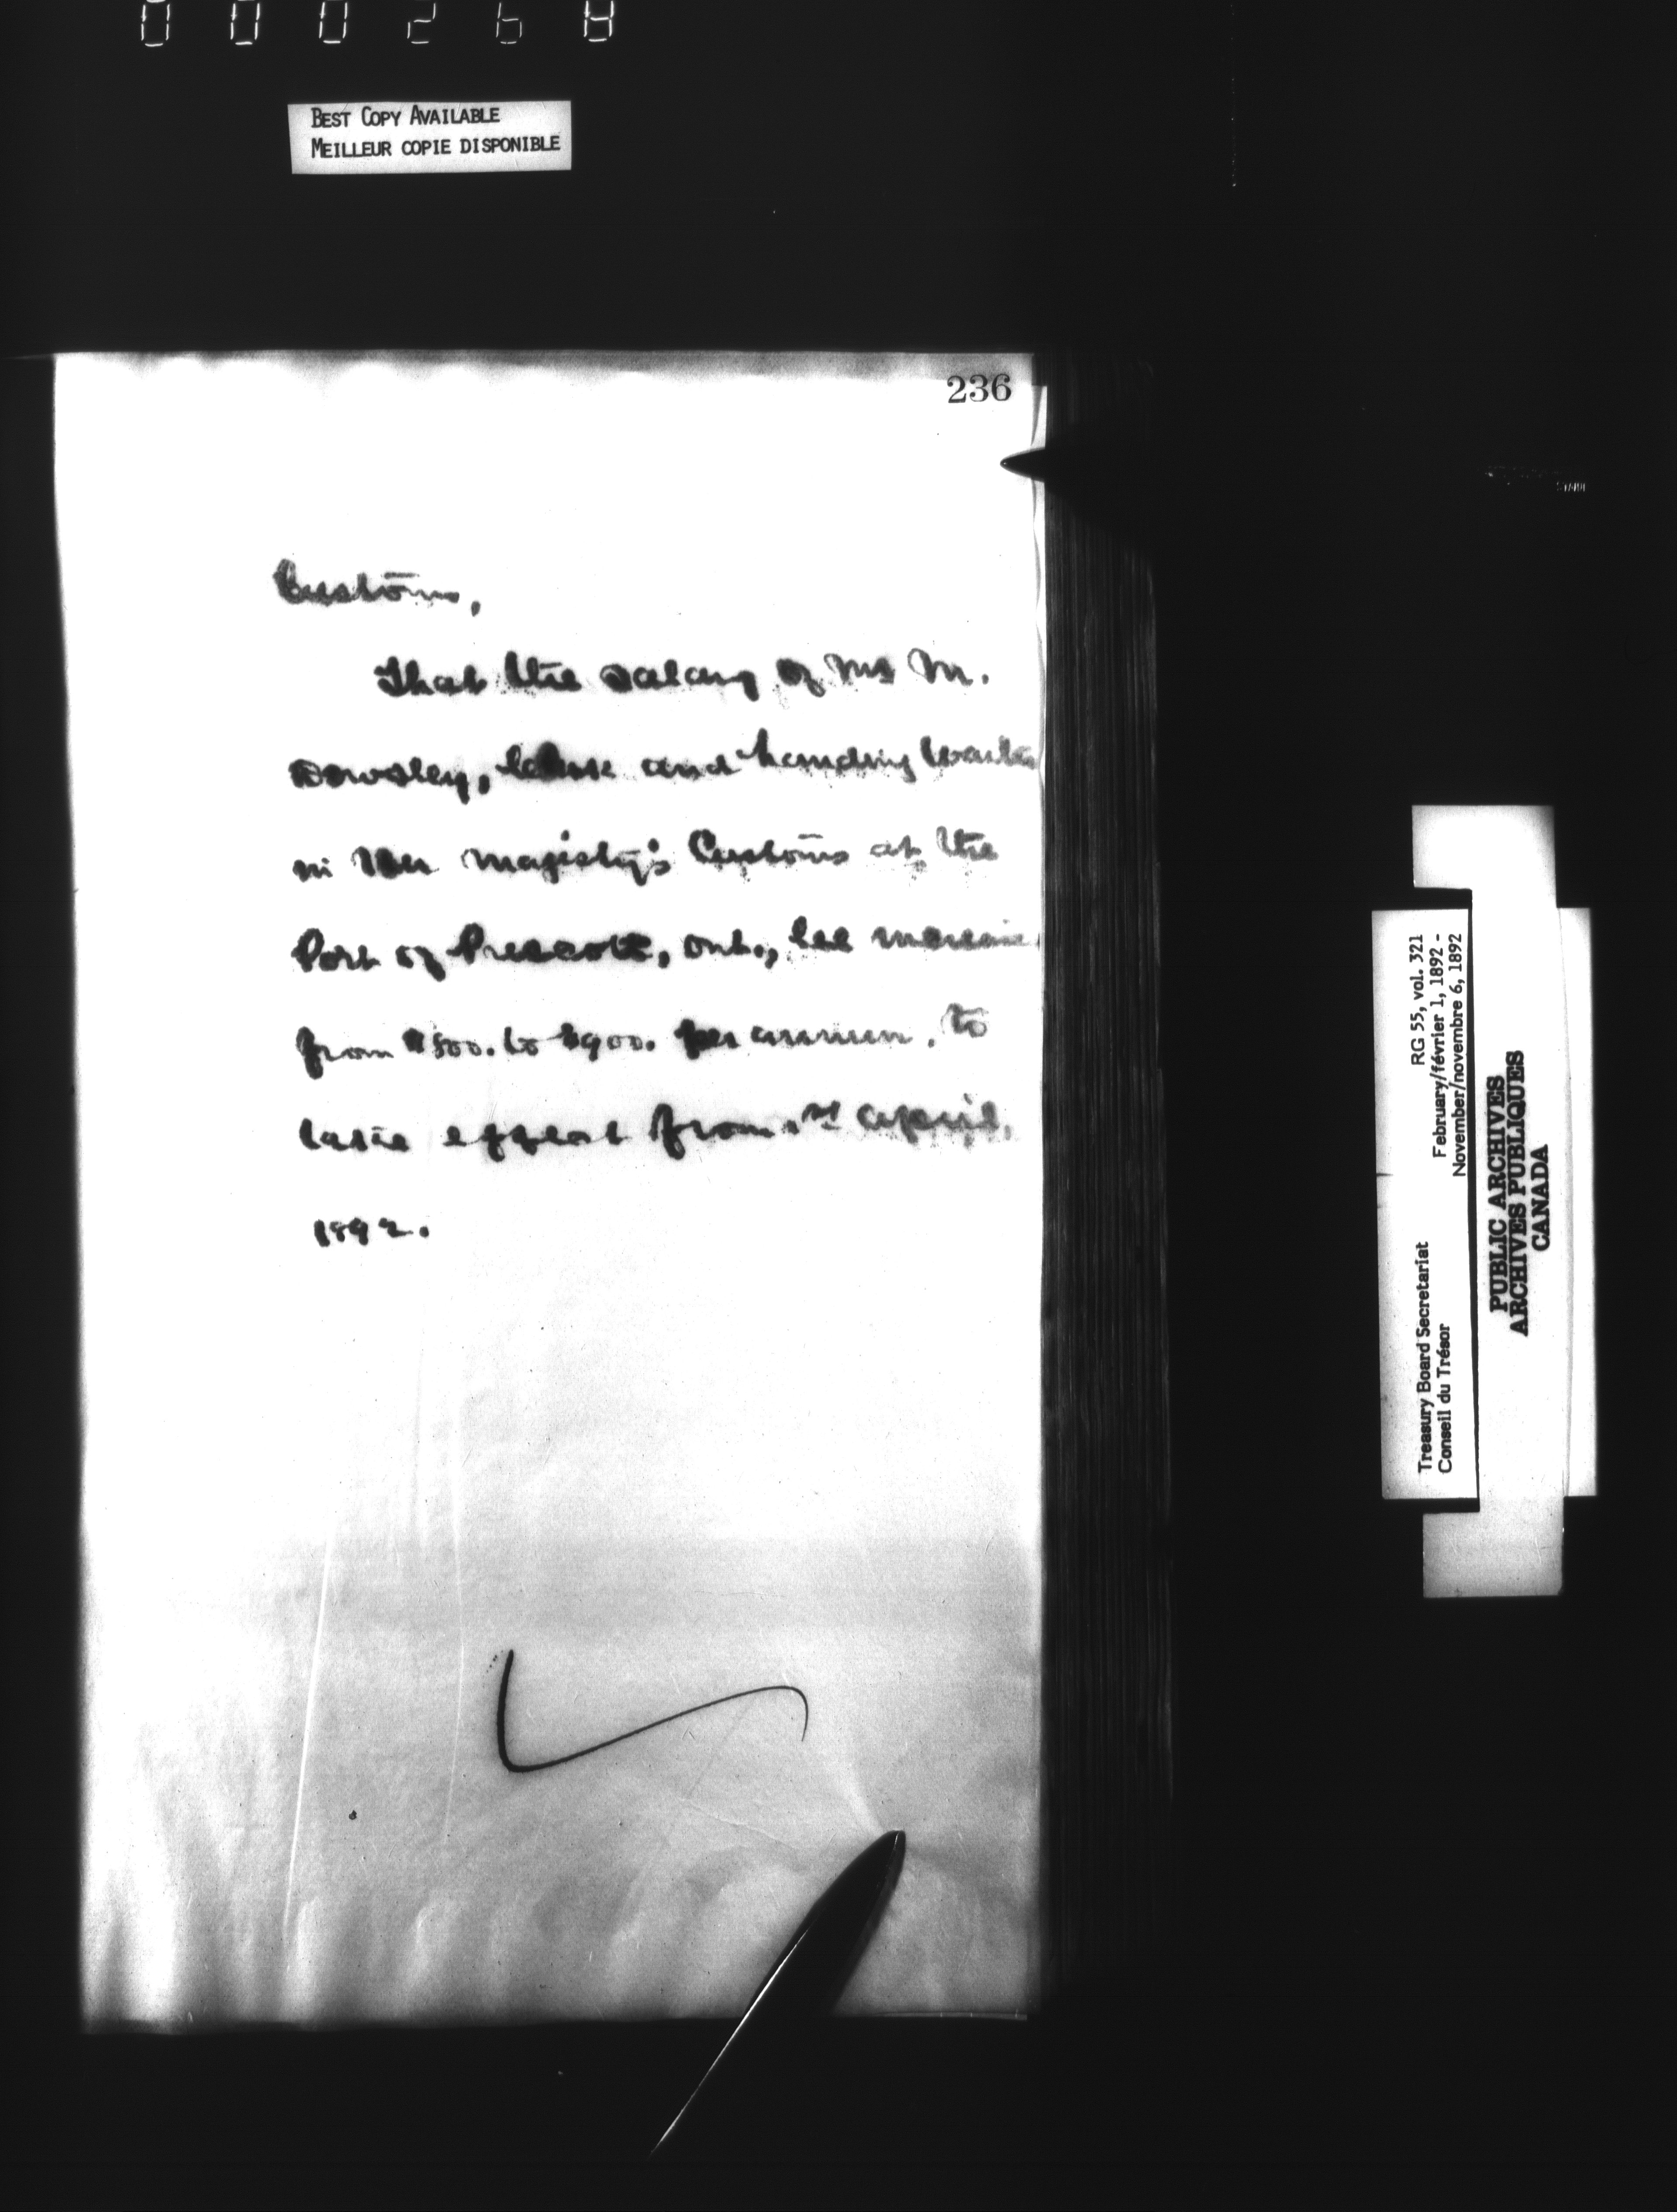 000268
BEST COPY AVAILABLE
MEILLEUR COPIE DISPONIBLE
236
Customs,
That the salary of Mr M.
Dowsley, Clerk and Landing Waiter
in Her Majesty's Customs at the
Port of Prescott, Ont., be increase
from $800. to $900. per annum, to
take effect from 1st April,
1892.
Treasury Board Secretariat RG 55, vol. 321
Conseil du Trésor February/février 1, 1892 -
November/novembre 6, 1892
PUBLIC ARCHIVES
ARCHIVES PUBLIQUES
CANADA